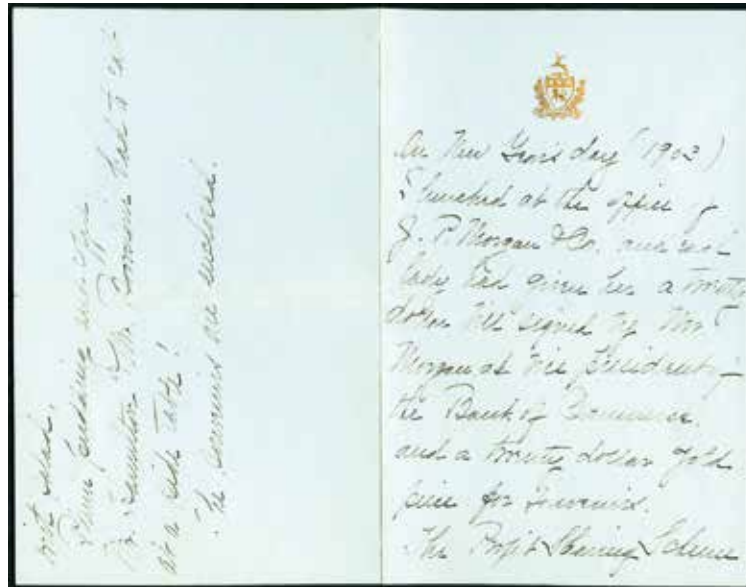 On New Year's day (1903)
I lunched at the office of
J. P. Morgan & Co. and each
lady had given her a twenty
dollar bill signed by Mr
Morgan as Vice President of
the Bank of Commerce
and a twenty dollar gold
piece for souvenirs.
The Profit Sharing Scheme
with salad,
Plum pudding and coffee
Mr. & Mr. had to eat
at a side table!
The souvenirs are enclosed.